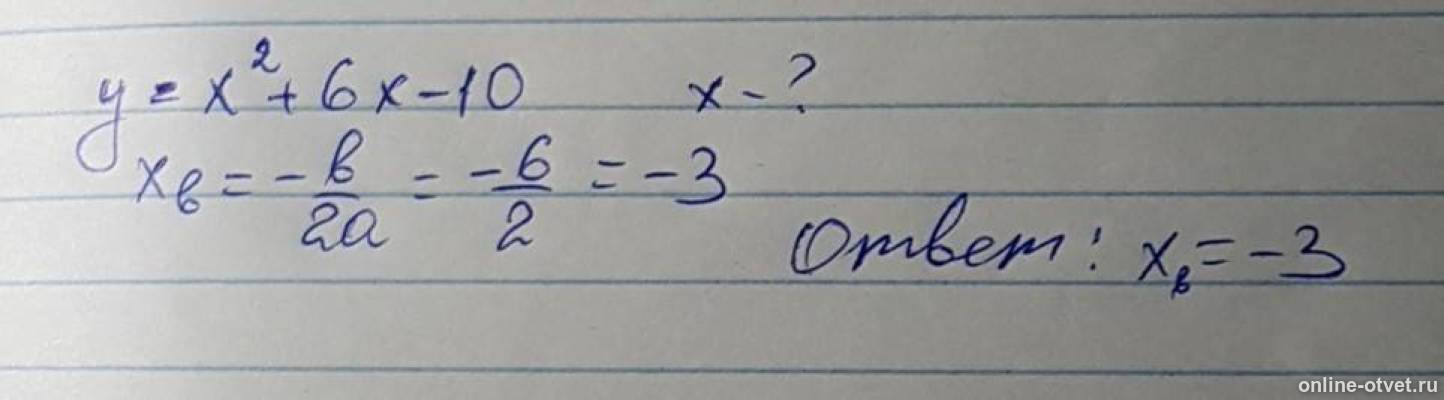 y = x² + 6x - 10 x - ?
xв = - в/2a = - 6/2 = - 3
Ответ: xв = - 3
online-otvet.ru